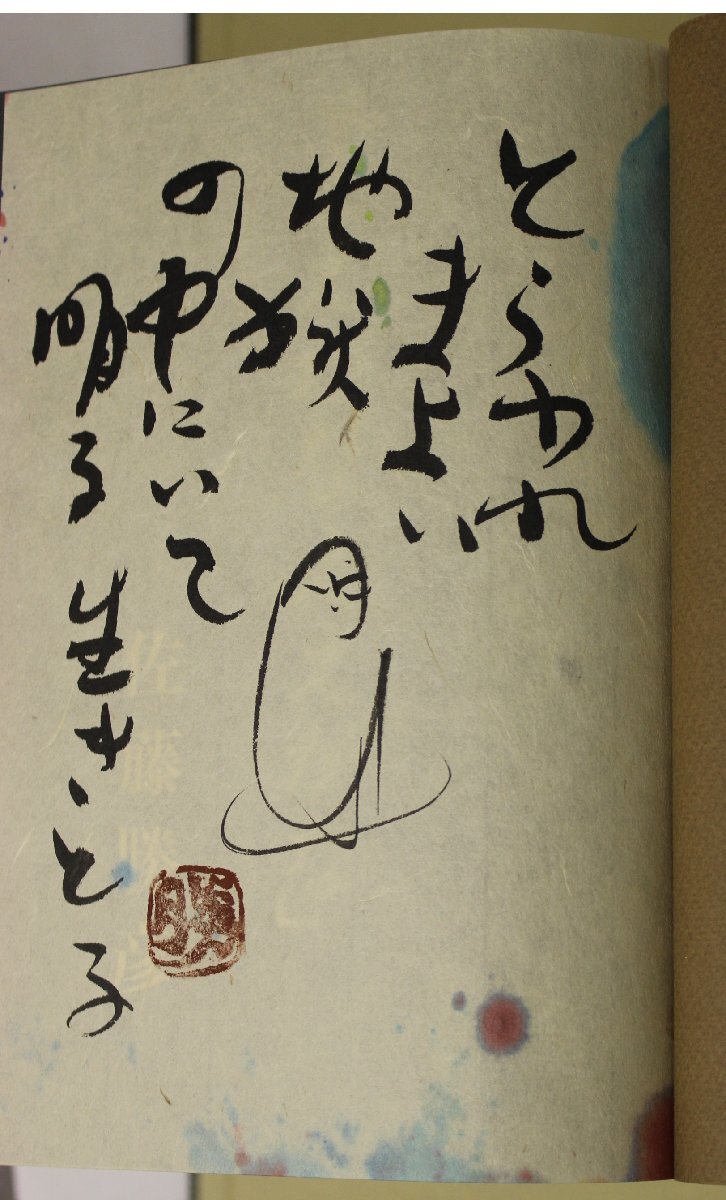 とらわれ
まよい
地獄
の中にいて
明る生き、と る
佐藤勝彦
勝